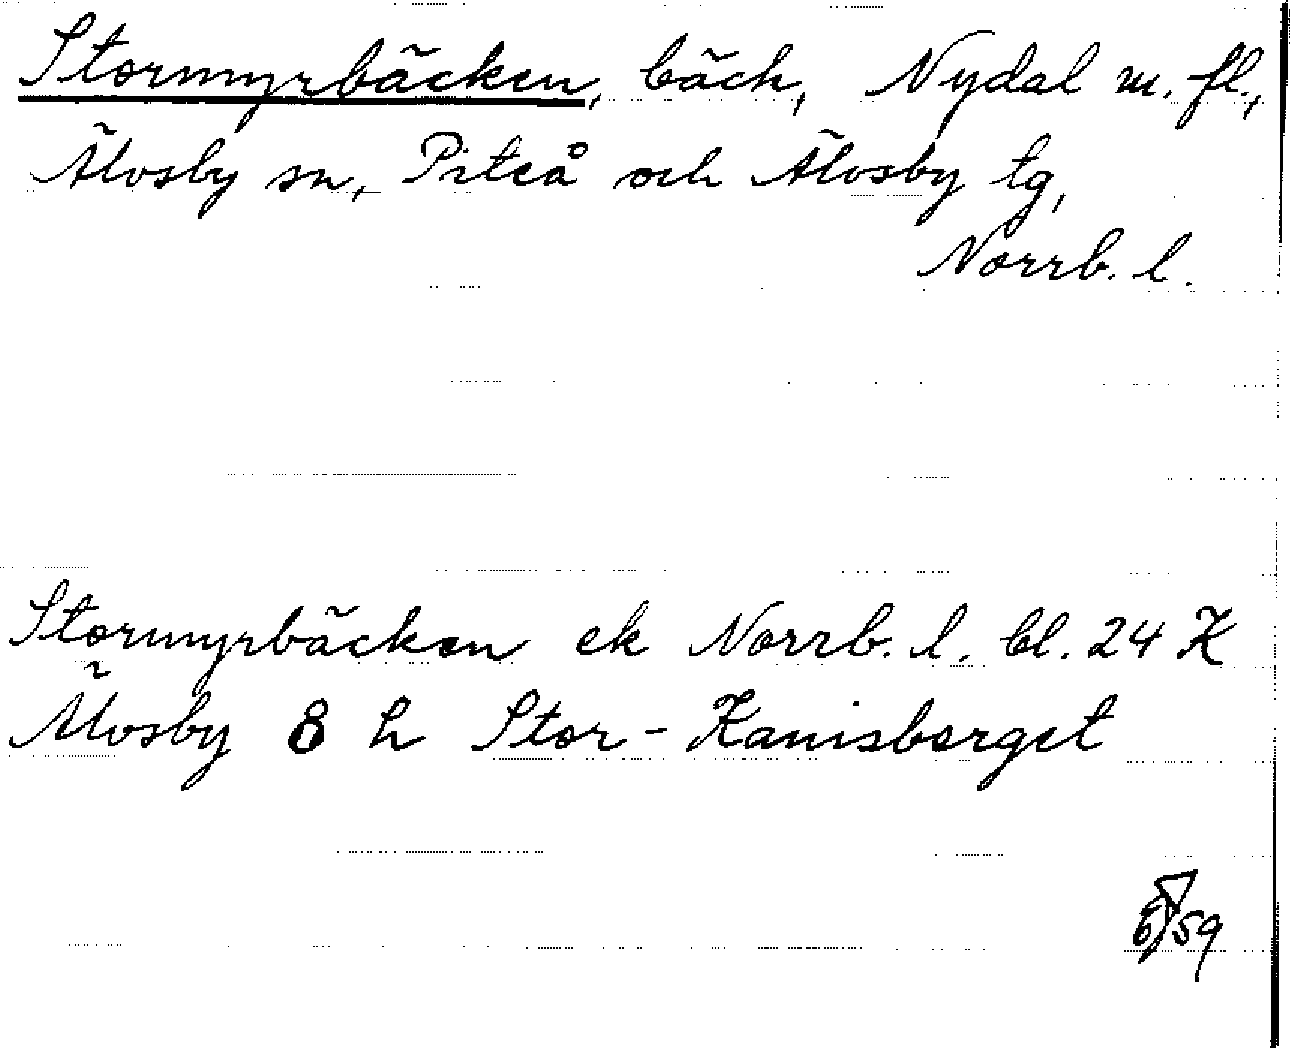 Stormyrbäcken, bäck, Nydal m. fl.,
Älvsby sn, Piteå och Älvsby tg,
Norrb. l.
Stormyrbäcken ek Norrb. l. bl. 24 K
Älvsby 8 h Stor-Kanisberget
59